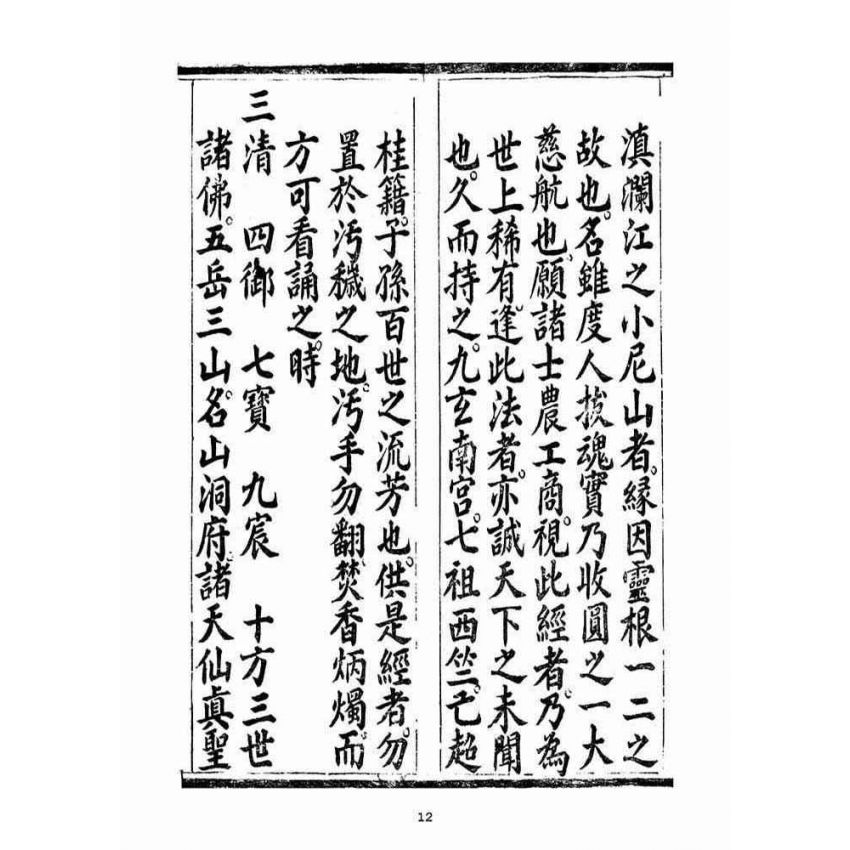 滇瀾江之小尼山者。緣因靈根一二之
故也。名雖度人拔魂實乃收圓之一大
慈航也。願諸士農工商。視此經者。乃為
世上稀有。逢此法者。亦誠天下之未聞
也。久而持之。九玄南宮。七祖西竺。亡超
桂籍。子孫百世之流芳也。供是經者。勿
置於污穢之地。污手勿翻。焚香炳燭。而
方可看誦之。時
三清 四御 七寶 九宸 十方三世
諸佛。五岳三山。名山洞府。諸天仙真聖
12